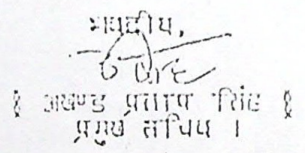 भवदीय,
§ अखण्ड प्रताप सिंह §
प्रमुख सचिव ।